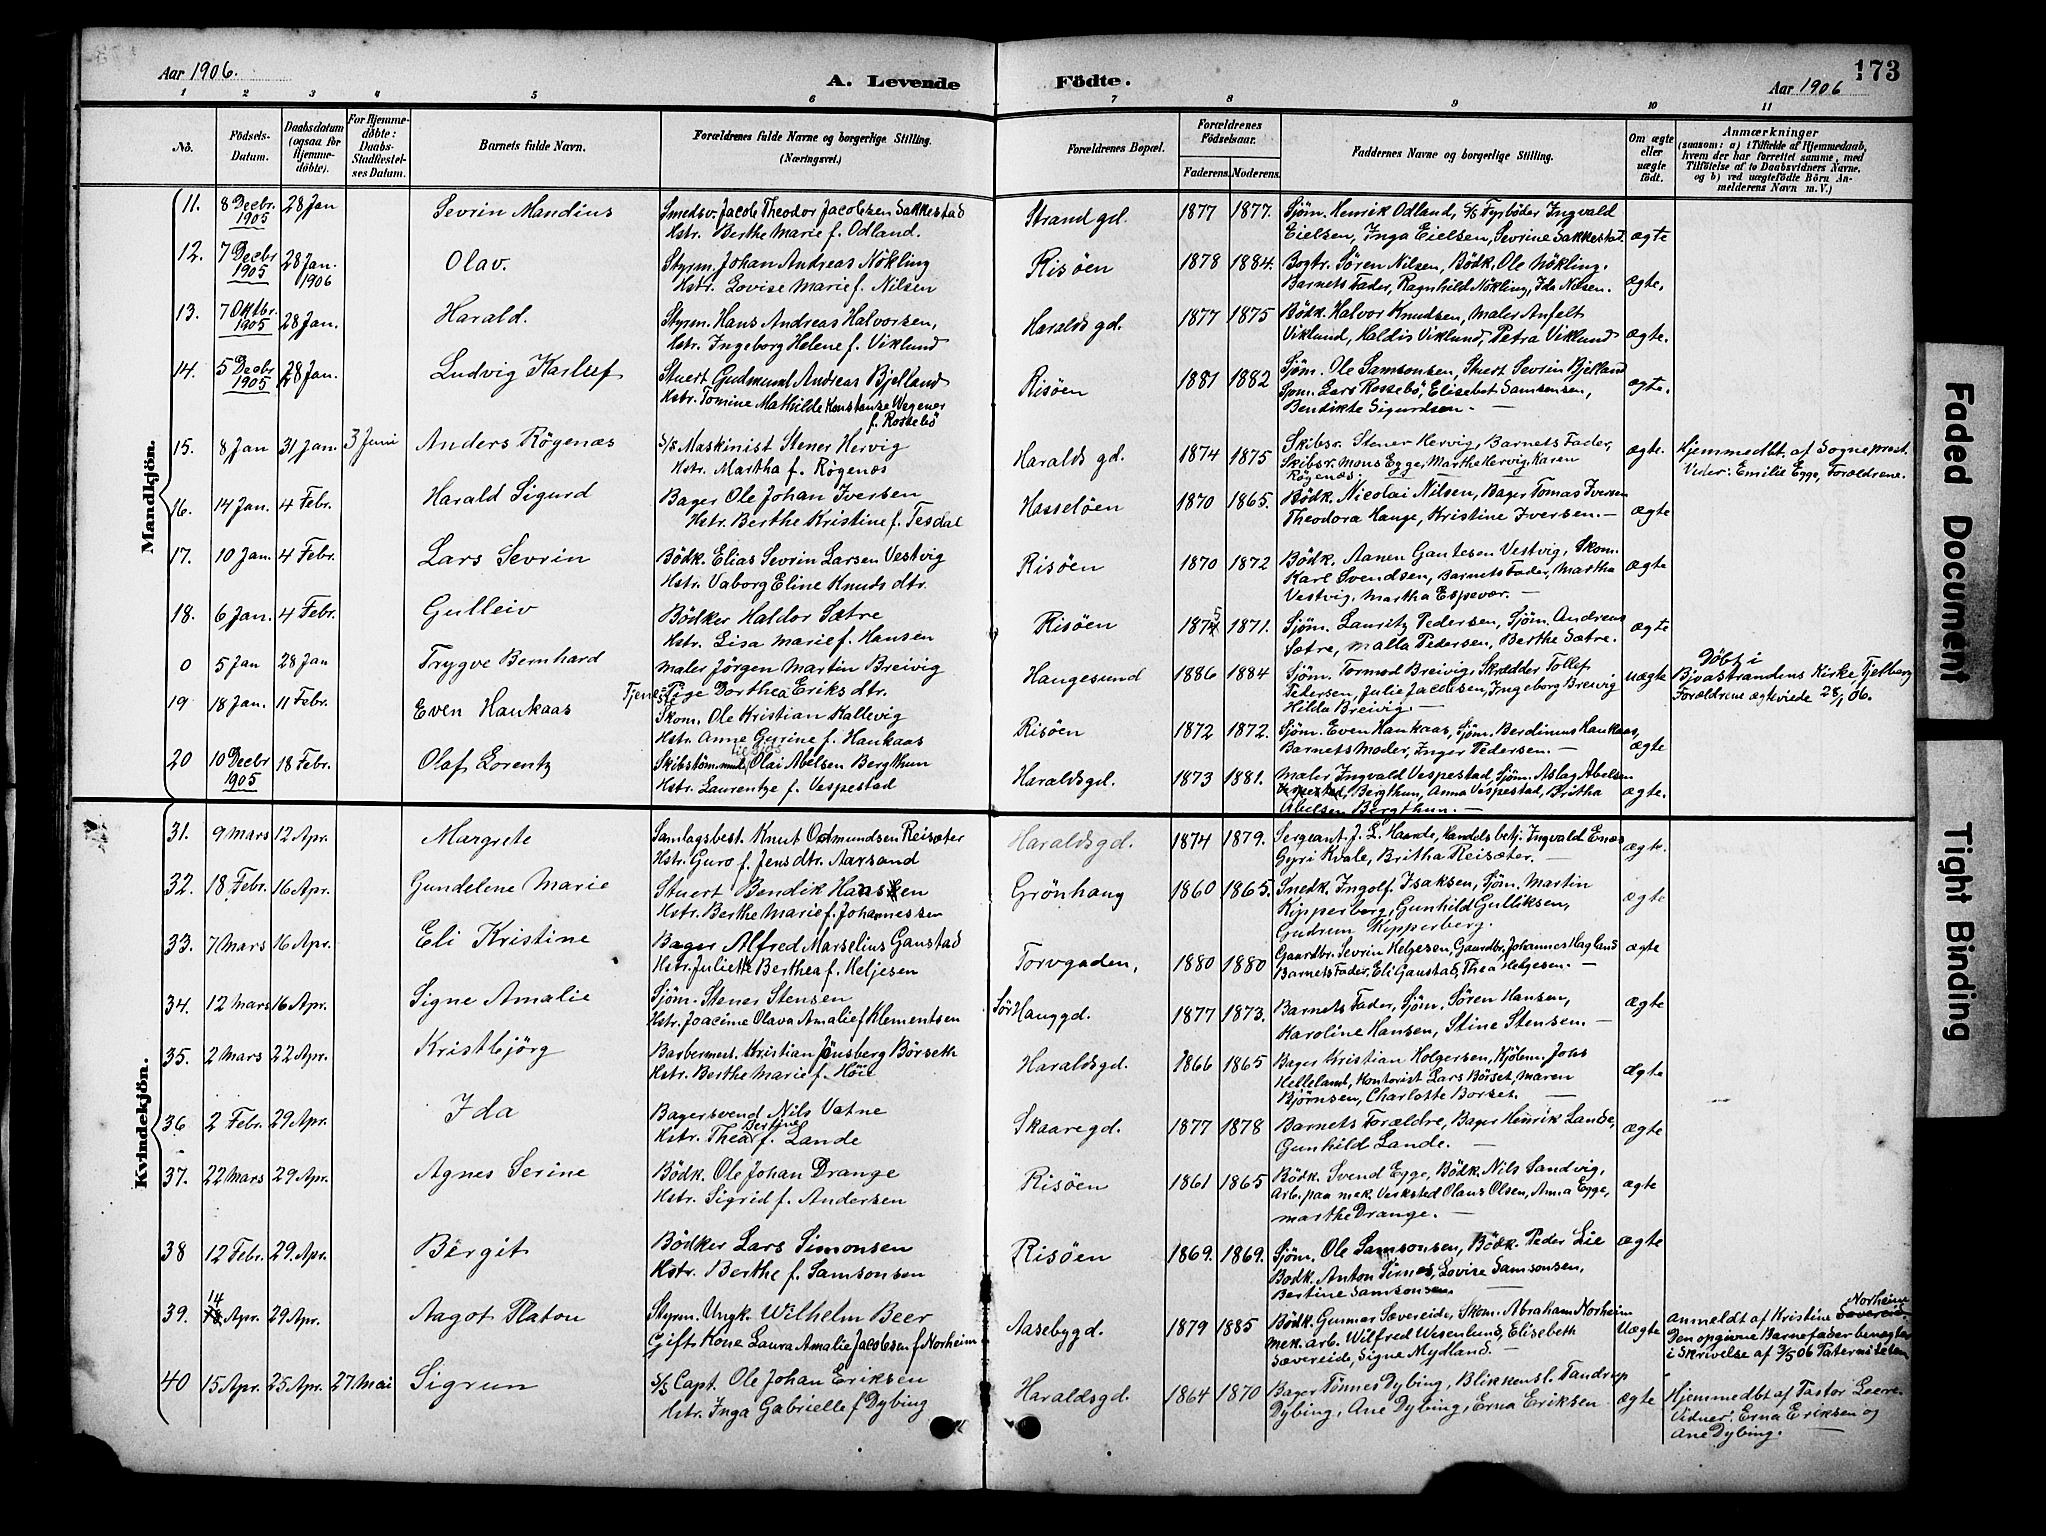 Aar 1906.
A. Levende
Födte.
Aar 1906
173
1 2 3 4 5 6 7 8 9 10 11
No.
Födsels-Datum.
Daabsdatum (ogsaa for Hjemmedöbte).
For Hjemmedöbte: Daabs-Stadfæstelses Datum.
Barnets fulde Navn.
Forældrenes fulde Navne og borgerlige Stilling. (Næringsvei.)
Forældrenes Bopæl.
Forældrenes Födselsaar.
Faderens. Moderens.
Faddernes Navne og borgerlige Stilling.
Om ægte eller uægte födt.
Anmærkninger
(saasom: a) i Tilfælde af Hjemmedaab, hvem der har forrettet samme, med Tilföielse af to Daabsvidners Navne, og b) ved uægtefödte Börn Anmelderens Navn m. V.)
Mandkjön.
11. 8 Decbr. 1905 28 Jan Sevrin Mandius
Smedsv. Jacob Theodor Jacobsen Sakkestad
Hstr. Berthe Marie f. Odland.
Strand gd. 1877 1877.
Sjøm. Henrik Odland, S/S Fyrbøder Ingvald
Eielsen, Inga Eielsen, Sevrine Sakkestad. ægte
12. 7 Decbr 1905 28 Jan. 1906 Olav.
Styrm. Johan Andreas Nökling
Hstr. Lovise Marie f. Nilsen
Risöen 1878 1884.
Bogtr. Sören Nilsen, Bödk. Ole Nökling.
Barnets Fader, Ragnhild Nökling, Ida Nilsen. ægte.
13. 7 Oktbr. 1905 28 Jan. Harald.
Styrm. Hans Andreas Halvorsen,
Hstr. Ingeborg Helene f. Viklund
Haralds gd. 1877 1875
Bödk. Halvor Knudsen, Maler Anfelt
Viklund, Haldis Viklund, Petra Viklund ægte.
14. 5 Decbr 1905 28 Jan. Ludvig Karluf
Stuert Gudmund Andreas Bjelland
Hstr. Tomine Mathilde Konstanse Wegener
f. Rossebö
Risöen 1881 1882
Sjøm. Ole Samsonsen, Stuert Sevrin Bjelland
Sjøm. Lars Rossebö, Elisebet Samsonsen,
Bendikte Sigurdsen. ægte.
15. 8 Jan 31 Jan. 3 Juni Anders Røgenæs
S/S Maskinist Stener Hervig
Hstr. Martha f. Røgenæs
Haralds gd. 1874 1875
Skibsr. Stener Hervig, Barnets Fader,
Skibsr. Mons Egge, Marthe Hervig, Karen
Røgenæs. ægte.
Hjemmedbt. af Sogneprest.
Vidr. Emilie Egge, Forældrene.
16. 14 Jan. 4 Febr. Harald Sigurd
Bager Ole Johan Iversen
Hstr. Berthe Kristine f. Tesdal
Hasselöen 1870 1865.
Bödk. Nicolai Nilsen, Bager Tomas Iversen
Theodora Hauge, Kristine Iversen. ægte
17. 10 Jan. 4 Febr. Lars Sevrin
Bödk. Elias Sevrin Larsen Vestvig
Hstr. Vaborg Eline Knuds dtr.
Risöen 1870 1872
Bödk. Aanen Gautesen Vestvig, Skom.
Karl Svendsen, Barnets Fader, Martha
Vestvig, Martha Espevær. ægte
18. 6 Jan. 4 Febr. Gulleiv
Bödker Haldor Sætre
Hstr. Lisa Marie f. Hansen
Risöen 1875 1871.
Sjøm. Lauritz Pedersen, Sjøm. Andreas
Sætre, Malla Pedersen, Berthe Sætre. ægte
0 5 Jan 28 Jan Trygve Bernhard
Maler Jörgen Martin Breivig
Tjenestpige Dorthea Eriks dtr.
Haugesund 1886 1884
Sjøm. Tormod Breivig, Skrædder Tollef
Petersen, Julie Jacobsen, Ingeborg Breivig
Hilda Breivig. uægte
Döbt i
Bjoastrandens Kirke Fjelberg
Forældrene ægteviede 28/1 06.
19 18 Jan. 11 Febr. Even Haukaas
Skom. Ole Kristian Kallevig
Hstr. Anne Gurine f. Haukaas
Risöen 1872 1872.
Sjøm. Even Haukaas, Sjøm. Berdinus Haukaas,
Barnets Moder, Inger Pedersen. ægte
20 10 Decbr 1905 18 Febr. Olaf Lorentz
Skibstømmerm. Olai Abelsen Bergthun
Hstr. Laurentze f. Vespestad
Haraldsgd. 1873 1881.
Maler Ingvald Vespestad, Sjøm. Aslag Abelsen
Bergthun, Anna Vespestad, Britha
Abelsen Bergthun. ægte.
Kvindekjön.
31. 9 Mars 12 Apr. Margrete
Samlagsbest. Knut Odmundsen Reisæter
Hstr. Guro f. Jensdtr. Aarsand
Haraldsgd. 1874 1879.
Sergeant J. L. Haande, Handelsbetj. Ingvald Enæs
Gyri Kvale, Britha Reisæter. ægte.
32. 18 Febr. 16 Apr. Gundelene Marie
Stuert Bendik Hansen
Hstr. Berthe Marie f. Johannessen
Grönhaug 1860 1865.
Snedk. Ingolf Isaksen, Sjøm. Martin
Kipperberg, Gunhild Gulliksen,
Gudrun Kipperberg. ægte
33. 7 Mars 16 Apr. Eli Kristine
Bager Alfred Marselius Gaustad
Hstr. Juliette Berthea f. Heljesen
Torvgaden, 1880 1880
Gaardbr. Sevrin Helgesen, Gaardbr. Johannes Hagland
Barnets Fader, Eli Gaustad, Thea Helgesen. ægte
34. 12 Mars 16 Apr. Signe Amalie
Sjøm. Stener Stensen
Hstr. Joacime Olava Amalie f Klementsen
Sør Hauggd. 1877 1873.
Barnets Fader, Sjøm. Søren Hansen,
Karoline Hansen, Stine Stensen. ægte
35. 2 Mars 22 Apr. Kristbjörg
Barbermest. Kristian Jönsberg Börseth
Hstr. Berthe Marie f. Höie
Haraldsgd. 1866 1865
Bager Kristian Holgersen, Kjølem. Johs
Helleland, Kontorist Lars Börset, Maren
Bjørnsen, Charlotte Borset. ægte
36 2 Febr. 29 Apr. Ida
Bagersvend Nils Vatne
Hstr. Thea Bertine f. Lande
Skaaregd. 1877 1878
Barnets Forældre, Bager Henrik Lande,
Gunhild Lande. ægte
37. 22 Mars 29 Apr. Agnes Serine
Bödk. Ole Johan Drange
Hstr. Sigrid f. Andersen
Risöen 1861 1865
Bödk. Svend Egge, Bödk. Nils Sandvig,
Arb. paa mek. Verksted Olaus Olsen, Anna Egge,
Marthe Drange. ægte
38 12 Febr. 29 Apr. Bergit
Bödker Lars Simonsen
Hstr. Berthe f. Samsonsen
Risöen 1869. 1869.
Sjøm. Ole Samsonsen, Bödk. Peder Lie
Bødk. Anton Simes, Lovise Samsonsen,
Bertine Samsonsen. ægte
39. 14 Apr. 29 Apr. Aagot Platou
Styrm. Ungk. Wilhelm Beer
Gift Kone Laura Amalie Jacobsen f Norheim
Aasebygd. 1879 1885
Bödk. Gunnar Sævereide, Skom. Abraham Norheim
Mek. arb. Wilfred Wesenlund, Elisebeth
Sævereide, Signe Mydland. Uægte
Anmeldt af Kristine Norheim
Den opgivne Barnefader benægter
i Skrivelse af 3/5 06 Paterniteten
40 15 Apr. 25 Apr. 27 Mai Sigrun
S/S Capt. Ole Johan Eriksen
Hstr. Inga Gabrielle f Dybing
Haraldsgd. 1864 1870
Bager Tönnes Dybing, Blikkensl. Tandrup
Dybing, Ane Dybing, Erna Eriksen ægte
Hjemmedbt af Pastor Geere.
Vidner: Erna Eriksen og
Ane Dybing.
Faded Document
Tight Binding